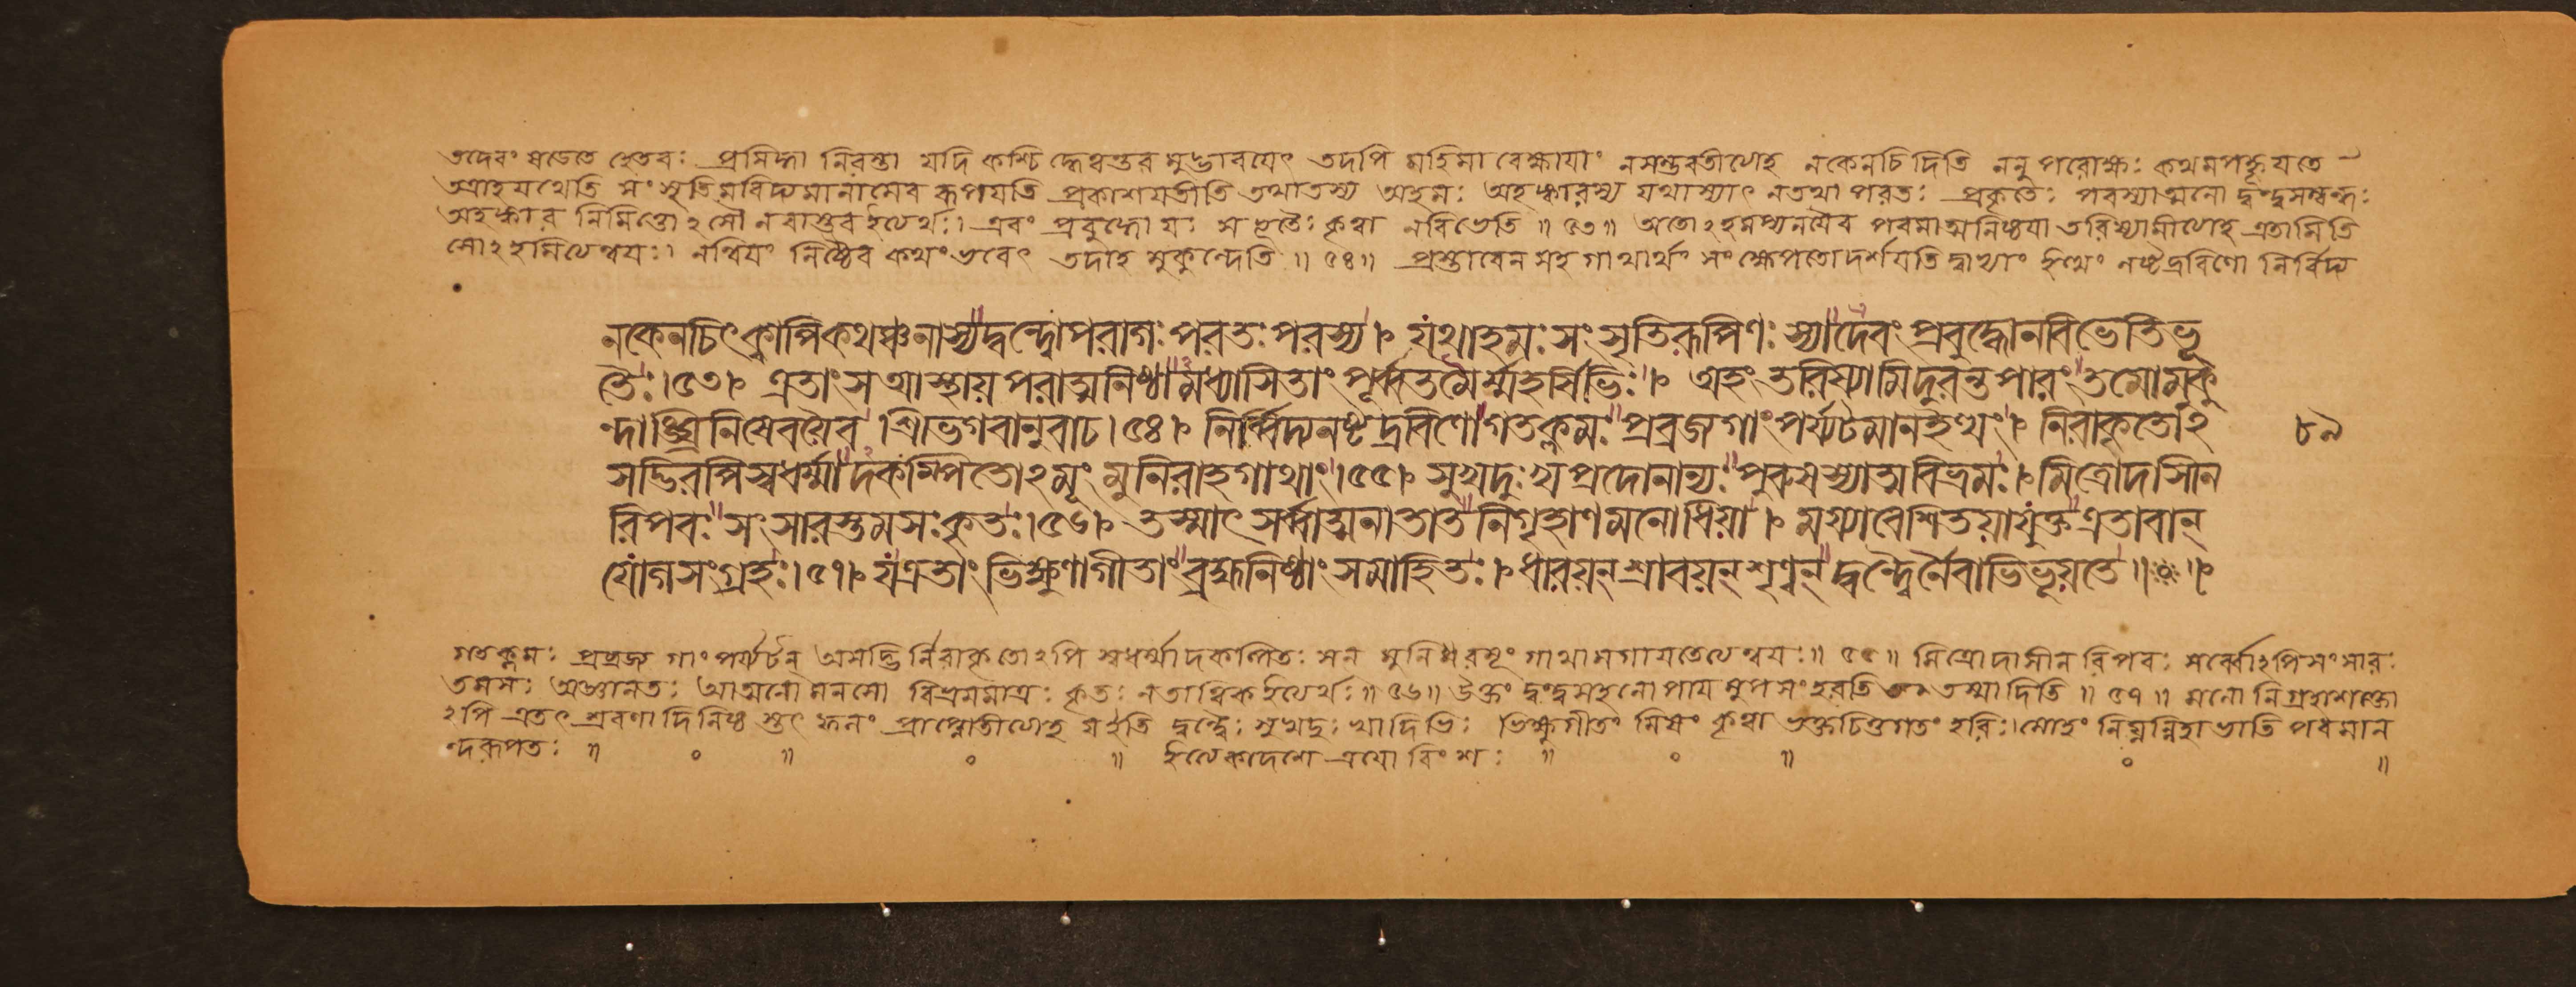 তদেবং ষডেতে হেতবঃ প্রসিদ্ধা নিরস্তা যদি কশ্চি দ্ধেত্বন্তর মুদ্ভাবয়েৎ তদপি মহিমা বেক্ষায়াং নসম্ভবতীত্যাহ নকেনচিদিতি ননু পরোক্ষঃ কথমপহ্নূয়তে
অত্রাহ যথেতি সংসৃতিমবিদ্যমানামেব রূপয়তি প্রকাশয়তীতি তথাতস্য অহমঃ অহঙ্কারস্য যথাস্যাৎ নতথা পরতঃ প্রকৃতেঃ পরস্যাত্মনো দ্বন্দ্বসম্বন্ধঃ
অহঙ্কার নিমিত্তো২সৌ নবাস্তব ইত্যর্থঃ। এবং প্রবুদ্ধো যঃ স ভূতৈঃ কৃত্বা নবিভেতি ॥ ৫৩॥ অতো২হমপ্যনয়ৈব পরমাত্মনিষ্ঠয়া তরিষ্যামীত্যাহ এতামিতি
সো২হমিত্যন্বয়ঃ। নন্বিয়ং নিষ্ঠৈব কথংভবেৎ তদাহ মুকুন্দেতি ॥ ৫৪॥ প্রস্তাবেন সহ গাথার্থং সংক্ষেপতোদর্শয়তি দ্বাভ্যাং ইত্থং নষ্টদ্রবিণো নির্বিদ্য
নকেনচিৎক্বাপিকথঞ্চনাস্যদ্বন্দ্বোপরাগঃপরতঃপরস্য। যথাহমঃসংসৃতিরূপিণঃস্যাদেবংপ্রবুদ্ধোনবিভেতিভূ
তৈঃ।৫৩। এতাংসআস্থায়পরাত্মনিষ্ঠামধ্যাসিতাংপূর্ব্বতমৈর্ম্মহর্ষিভিঃ। অহংতরিষ্যামিদুরন্তপারংতমোমুকু
ন্দাঙ্ঘ্রিনিষেবয়ৈব শ্রীভগবানুবাচ।৫৪। নির্ব্বিদ্যনষ্টদ্রবিণোগতক্লমঃপ্রব্রজ্যগাংপর্য্যটমানইত্থং। নিরাকৃতো২
সদ্ভিরপিস্বধর্ম্মাদকম্পিতো২মূং মুনিরাহগাথাং।৫৫। সুখদুঃখপ্রদোনান্যঃপুরুষস্যাত্মবিভ্রমঃ। মিত্রোদাসীন
রিপবঃসংসারস্তমসঃকৃতঃ।৫৬। তস্মাৎসর্ব্বাত্মনাতাতনিগৃহাণমনোধিয়া। ময্যাবেশিতয়াযুক্তএতাবান্
যোগসংগ্রহঃ।৫৭। যএতাংভিক্ষুণাগীতাংব্রহ্মনিষ্ঠাংসমাহিতঃ। ধারয়ন্শ্রাবয়ন্শৃণ্বন্দ্বন্দ্বৈর্নৈবাভিভূয়তে॥
৮৯
গতক্লমঃ প্রব্রজ্য গাংপর্য্যটন্ অসদ্ভি র্নিরাকৃতো২পি স্বধর্ম্মাদকম্পিতঃ সন মুনি গাথামগায়তেত্যন্বয়ঃ॥ ৫৫॥ মিত্রোদাসীন রিপবঃ সর্ব্বো২পিসংসারঃ
তমসঃ অজ্ঞানতঃ আত্মনো মনসো বিভ্রমমাত্রঃ কৃতঃ নতাত্ত্বিক ইত্যর্থঃ॥ ৫৬॥ উক্তং দ্বন্দ্বসহনোপায় মুপসংহরতি তস্মাদিতি ॥ ৫৭॥ মনো নিগ্রহাশক্তো
২পি এতৎ শ্রবণাদিনিষ্ঠ স্তৎ ফলং প্রাপ্নোতীত্যাহ যইতি দ্বন্দ্বৈঃ সুখদুঃখাদিভিঃ ভিক্ষুগীতং মিষং কৃত্বা ভক্তচিত্তগতং হরিঃ। মোহং নিঘ্নন্নিহাভাতি পরমান
ন্দরূপতঃ ॥ ॰ ॥ ॰ ॥ ইত্যেকাদশে ত্রয়োবিংশঃ ॥ ॰ ॥ ॰ ॥